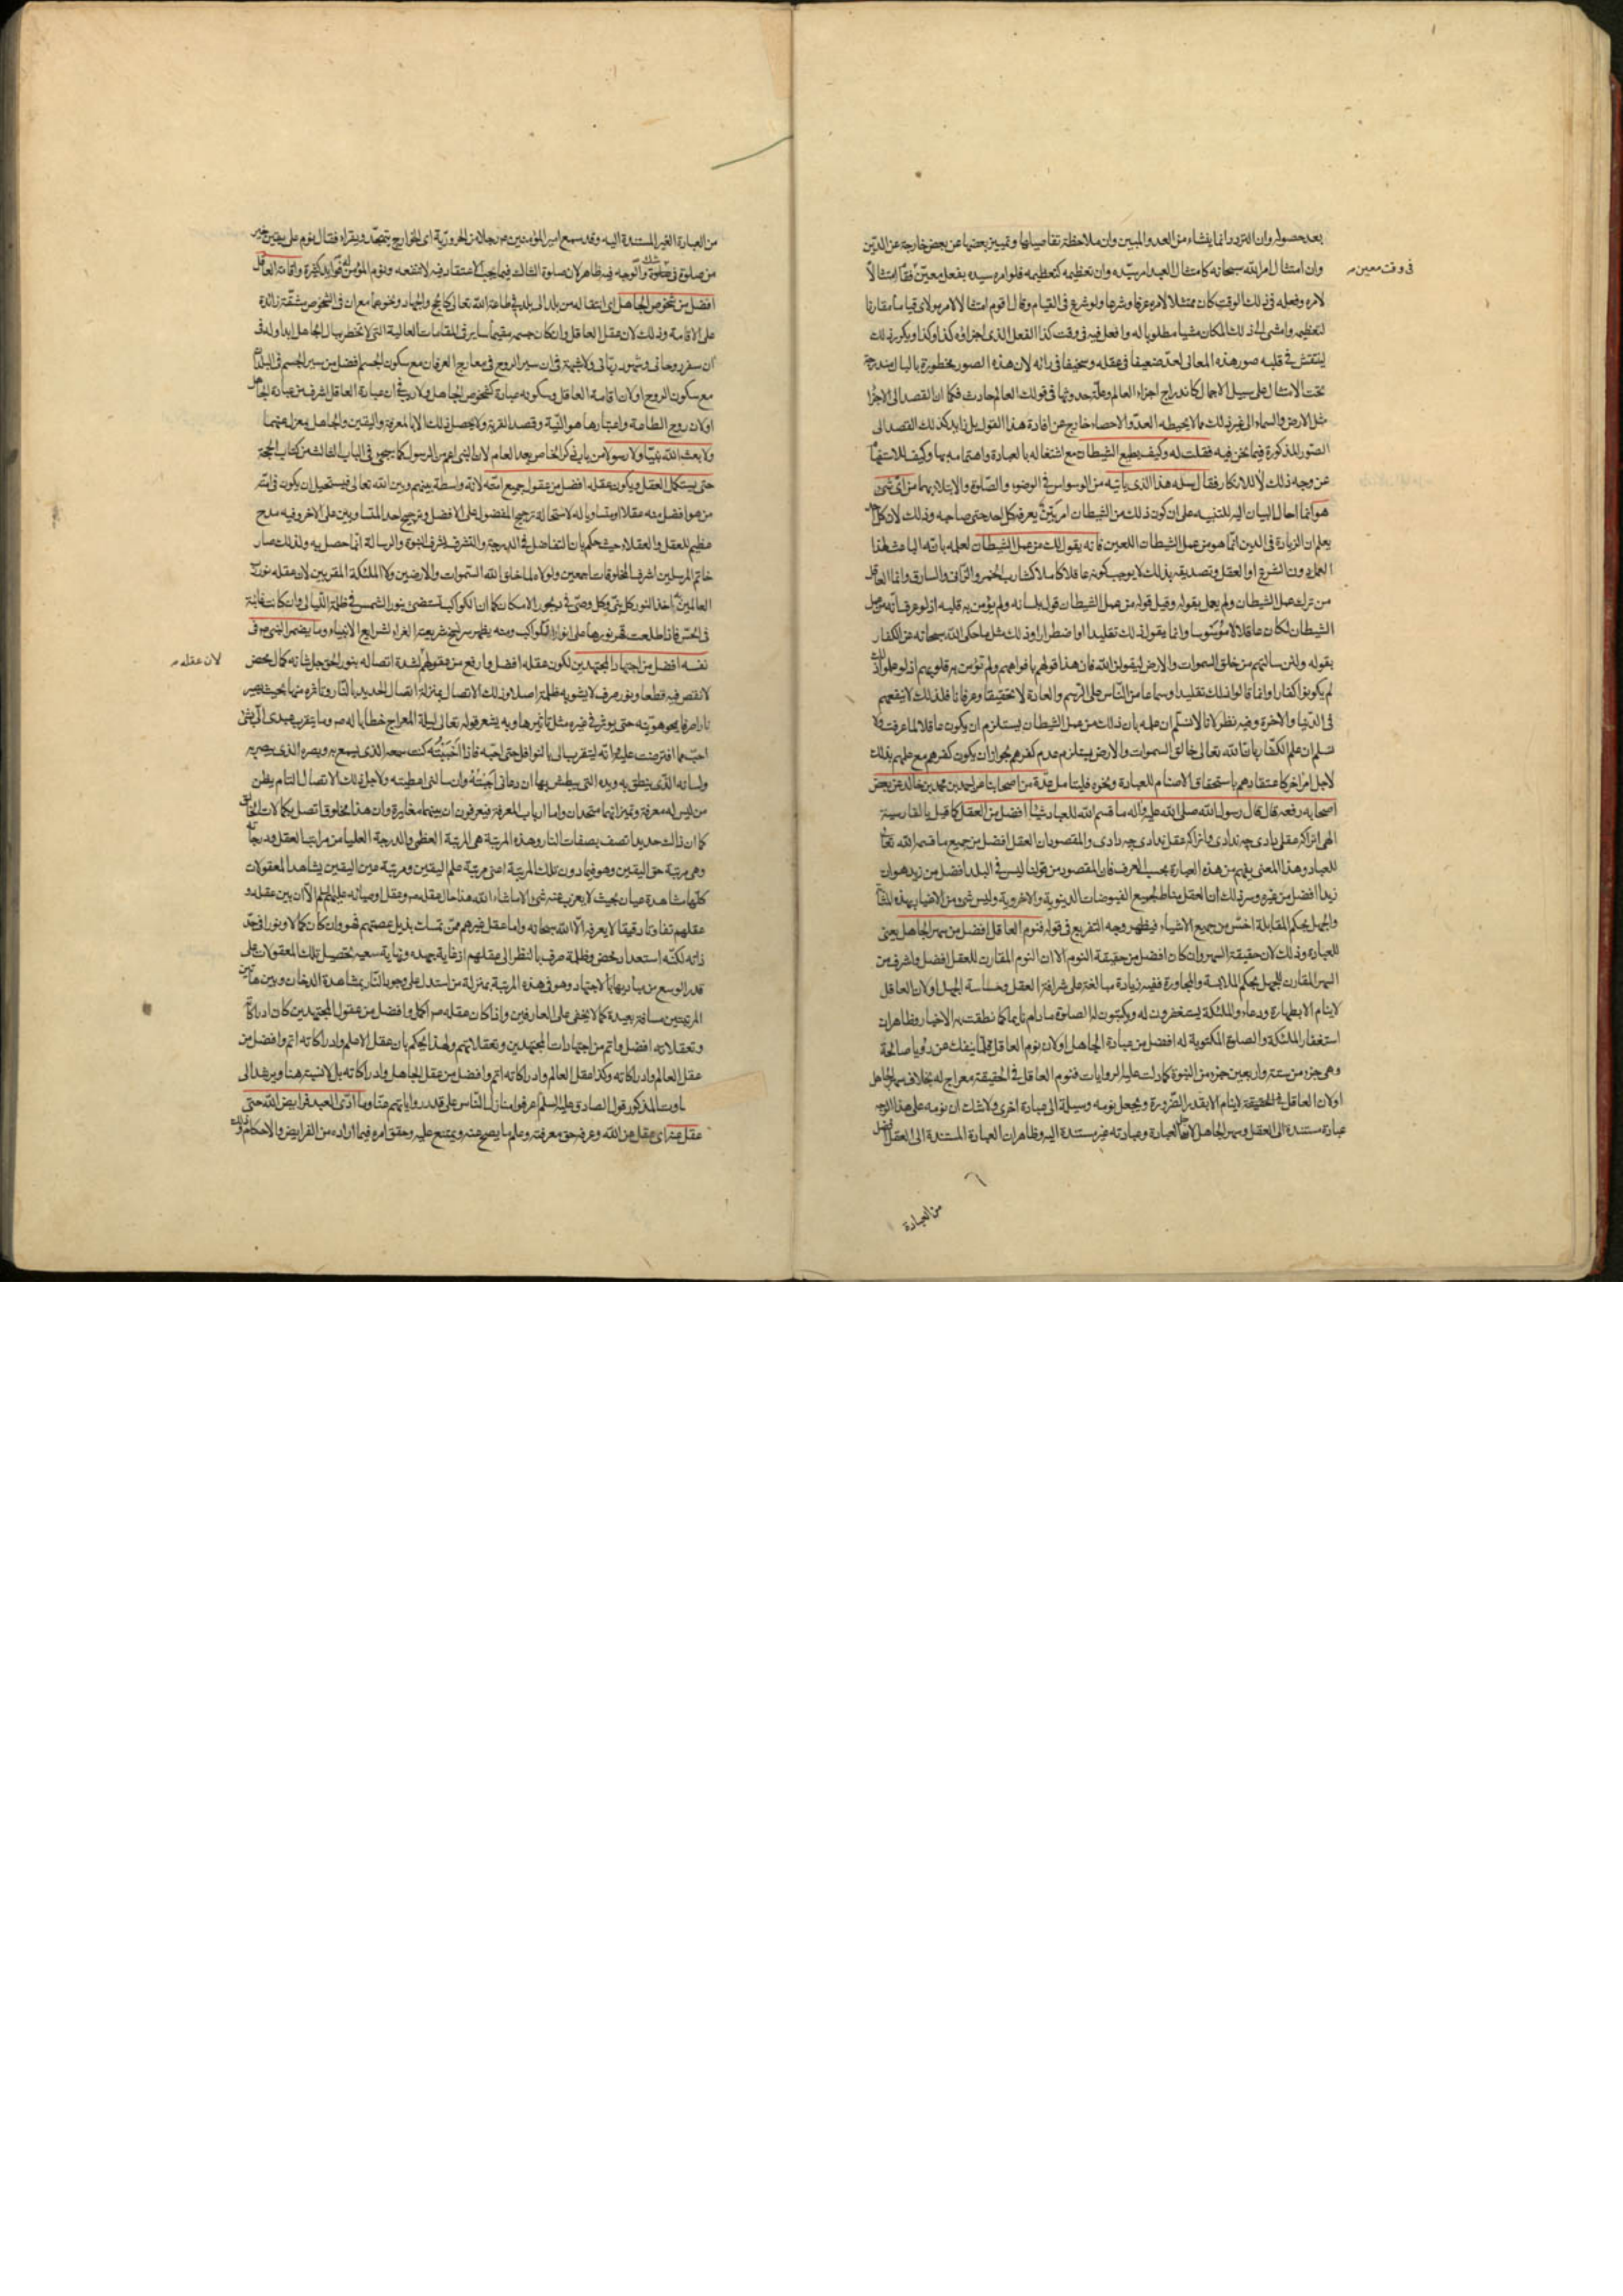 بعد حصوله وان التردد انما ينشاء من العدو المبين وان ملاحظة تفاصيلها وتمييز بعضها عن بعض خارجة عن الدين
وان امتثال امر الله سبحانه كامتثال العبد امر سيده وان تعظيمه كتعظيمه فلو امره سيده بفعل معين
فى وقت معين
لامره وفعله فى ذلك الوقت كان ممتثلا لامره عرفا وشرعا ولو شرع فى القيام وقال اقوم امتثالا لامر مولاى قياما مقارنا
لتعظيمه وامشى الى ذلك المكان مشيا مطلوبا له وافعل فيه فى وقت كذا الفعل الذى اجزاؤه كذا وكذا ويكرر ذلك
لينتقش فى قلبه صور هذه المعانى لعد ضعيفا فى عقله وسخيفا فى رائه لان هذه الصور مخطورة بالبال مندرجة
تحت الامتثال على سبيل الاجمال كاندراج اجزاء العالم وعلة حدوثها فى قولك العالم حادث فكما ان القصد الى الاجزاء
مثل الارض والسماء الى غير ذلك مما لا يحيطه العد والاحصاء خارج عن افادة هذا القول بل زايد كذلك القصد الى
الصور المذكورة فيما نحن فيه فقلت له وكيف يطيع الشيطان مع اشتغاله بالعبادة واهتمامه بها وكيف للاستفهام
عن وجه ذلك لا للانكار فقال سله هذا الذى ياتيه من الوسواس فى الوضوء والصلوة والابتلاء بهما من اى شئ
هو انما احال البيان اليه للتنبيه على ان كون ذلك من الشيطان امر بين يعرفه كل احد حتى صاحبه وذلك لان كل
يعلم ان الزيادة فى الدين انما هو من عمل الشيطان اللعين فانه يقول لك من عمل الشيطان لعلمه بانه الباعث لهذا
العمل دون الشرع او العقل وتصديقه بذلك لا يوجب كونه عاقلا كاملا كشارب الخمر والزانى والسارق وانما العاقل
من ترك عمل الشيطان ولم يعمل بقوله وقيل قوله من عمل الشيطان قول بلسانه ولم يؤمن به قلبه اذ لو عرف انه من عمل
الشيطان لكان عاقلا لا موسوسا وانما يقول ذلك تقليدا او اضطرارا وذلك مثل ما حكى الله سبحانه عن الكفار
بقوله ولئن سالتهم من خلق السموات والارض ليقولن الله فان هذا قولهم بافواههم ولم تؤمن به قلوبهم اذ لو علموا ذلك
لم يكونوا كفارا وانما قالوا ذلك تقليدا وسماعا من الناس على الرسم والعادة لا تحقيقا وعرفانا فلذلك لا ينفعهم
فى الدنيا والاخرة وفيه نظر لانا لا نسلم ان علمه بان ذلك من عمل الشيطان يستلزم ان يكون عاقلا لما عرفت ولا
نسلم ان علم الكفار بان الله تعالى خالق السموات والارض يستلزم عدم كفرهم لجواز ان يكون كفرهم مع علمهم بذلك
لاجل امر اخر كاعتقادهم باستحقاق الاصنام للعبادة ونحوه فليتامل عدة من اصحابنا عن احمد بن محمد بن خالد عن بعض
اصحابه رفعه قال قال رسول الله صلى الله عليه وآله ما قسم الله للعباد شيئا افضل من العقل كما قيل بالفارسية
الهى انرا كه عقل دادى چه ندادى وانرا كه عقل ندادى چه دادى والمقصود ان العقل افضل من جميع ما قسم الله تعا
للعباد وهذا المعنى يفهم من هذه العبارة بحسب العرف فان المقصود من قولنا ليس فى البلد افضل من زيد هو ان
زيدا افضل من غيره وسر ذلك ان العقل مناط لجميع الفيوضات الدنيوية والاخروية وليس شئ من الاشياء بهذه المثابة
والجهل بحكم المقابلة اخس من جميع الاشياء فيظهر وجه التفريع فى قوله فنوم العاقل افضل من سهر الجاهل يعنى
للعبادة وذلك لان حقيقة السهر وان كان افضل من حقيقة النوم الا ان النوم المقارن للعقل افضل واشرف من
السهر المقارن للجهل بحكم الملابسة والمجاورة ففيه زيادة مبالغة على شرافة العقل وخساسة الجهل اولان العاقل
لا ينام الا بطهارة ودعاء والملئكة يستغفرون له ويكتبون له الصلوة مادام نايما كما نطقت به الاخبار وظاهر ان
استغفار الملئكة والصلوة المكتوبة له افضل من عبادة الجاهل اولان نوم العاقل قلما ينفك عن رؤيا صالحة
وهى جزء من ستة واربعين جزء من النبوة كما دلت عليه الروايات فنوم العاقل فى الحقيقة معراج له بخلاف سهر الجاهل
اولان العاقل فى الحقيقة لا ينام الا بقدر الضرورة ويجعل نومه وسيلة الى عبادة اخرى ولا شك ان نومه على هذا الوجه
عبادة مستندة الى العقل وسهر الجاهل للعبادة وعبادته غير مستندة اليه وظاهر ان العبادة المستندة الى العقل افضل
من العبادة
من العبادة الغير المستندة اليه وقد سمع امير المؤمنين رجلا من الحرورية اى الخوارج يتهجد ويقراء فقال نوم على يقين خير
من صلوة فى شك والوجه فيه ظاهر لان صلوة الشاك فيما يجب الاعتقاد فيه لا تنفعه ونوم المؤمن له فوايد كثيرة واقامة العاقل
افضل من شخوص الجاهل اى انتقاله من بلد الى بلد فى طاعة الله تعالى كالحج والجهاد ونحوهما مع ان فى الشخوص مشقة زائدة
على الاقامة وذلك لان عقل العاقل وان كان جسمه مقيما ساير فى المقامات العالية التى لا تخطر ببال الجاهل ابدا وله فى
ان سفر روحانى وشهود ربانى ولا شبهة فى ان سير الروح فى معارج العرفان مع سكون الجسم افضل من سير الجسم فى البلدان
مع سكون الروح اولان اقامة العاقل وسكونه عبادة كشخوص الجاهل ولا ريب فى ان عبادة العاقل اشرف من عبادة الجاهل
اولان روح الطاعة واعتبارها هو النية وقصد القربة ولا يحصل ذلك الا بالمعرفة واليقين والجاهل بمعزل عنهما
ولا بعث الله نبيا ولا رسولا من باب ذكر الخاص بعد العام لان النبى اعم من الرسول كما يجئ فى الباب الثالث من كتاب الحجة
حتى يستكمل العقل ويكون عقله افضل من عقول جميع امته لانه واسطة بينهم وبين الله تعالى فيستحيل ان يكون فى امته
من هو افضل منه عقلا او مساويا له لاستحالة ترجيح المفضول على الافضل وترجيح احد المتساويين على الاخر وفيه مدح
عظيم للعقل والعقلاء حيث حكم بان التفاضل فى الدرجة والتشرف بشرف النبوة والرسالة انما حصل به ولذلك صار
خاتم المرسلين اشرف المخلوقات اجمعين ولولاه لما خلق الله السموات والارضين ولا الملئكة المقربين لان عقله نور رب
العالمين اخذ النور كل نبى وكل وصى فى ديجور الامكان كما ان الكواكب تستضئ بنور الشمس فى ظلمة الليالى وان كانت غائبة
فى الحس فاذا طلعت قهر نورها على انوار الكواكب ومنه يظهر سر نسخ شريعته الغراء لشرايع الانبياء وما يضمر النبى فى
نفسه افضل من اجتهاد المجتهدين لكون عقله افضل وارفع من عقولهم لشدة اتصاله بنور الحق جل شانه كمال محض
لان عقله
لا نقص فيه قطعا ونور صرف لا يشوبه ظلمة اصلا وذلك الاتصال بمنزلة اتصال الحديد بالنار وتاثره منها بحيث يصير
نارا صرفا يمحو هويته حتى يوثر فى غيره مثل تاثيرها وبه يشعر قوله تعالى ليلة المعراج خطابا له ص وما يتقرب عبدى الى بشئ
احب مما افترضت عليه وانه ليتقرب الى بالنوافل حتى احبه فاذا احببته كنت سمعه الذى يسمع به وبصره الذى يبصر به
ولسانه الذى ينطق به ويده التى يبطش بها ان دعانى اجبته وان سالنى اعطيته ولاجل ذلك الاتصال التام يظن
من ليس له معرفة وتميز انهما متحدان واما ارباب المعرفة فيعرفون ان بينهما مغايرة وان هذا مخلوق اتصل بكمالات الخالق
كما ان ذاك حديد اتصف بصفات النار وهذه المرتبة هى المرتبة العظمى والدرجة العليا من مراتب العقل ودرجاته
وهى مرتبة حق اليقين وهو فيما دون تلك المرتبة اعنى مرتبة علم اليقين ومرتبة عين اليقين يشاهد المعقولات
كلها مشاهدة عيان بحيث لا يعزب عنه شئ الا ما شاء الله هذا حال عقله ص وعقل اوصيائه عليهم السلم الا ان بين عقله و
عقلهم تفاوتا دقيقا لا يعرفه الا الله سبحانه واما عقل غيرهم ممن تمسك بذيل عصمتهم فهو وان كان كمالا ونورا فى حد
ذاته لكنه استعداد محض وظلمة صرف بالنظر الى عقلهم اذ غاية جهده ونهاية سعيه تحصيل تلك المعقولات على
قدر الوسع من مباديها بالاجتهاد وهو فى هذه المرتبة بمنزلة من استدل على وجود النار بمشاهدة الدخان وبين هاتين
المرتبتين مسافة بعيدة كما لا يخفى على العارفين واذا كان عقله ص اكمل وافضل من عقول المجتهدين كان ادراكاته
وتعقلاته افضل واتم من اجتهادات المجتهدين وتعقلاتهم ولهذا يحكم بان عقل الاعلم وادراكاته اتم وافضل من
عقل العالم وادراكاته وكذا عقل العالم وادراكاته اتم وافضل من عقل الجاهل وادراكاته بل لا نسبة هنا ويرشد الى
المذكور قول الصادق عليه السلم اعرفوا منازل الناس على قدر رواياتهم عنا وما ادى العبد فرايض الله حتى
عقل عنه اى عقل عن الله وعرفه حق معرفته وعلم ما يصح عنه ويمتنع عليه وحقق امره فيما اراده من الفرايض والاحكام